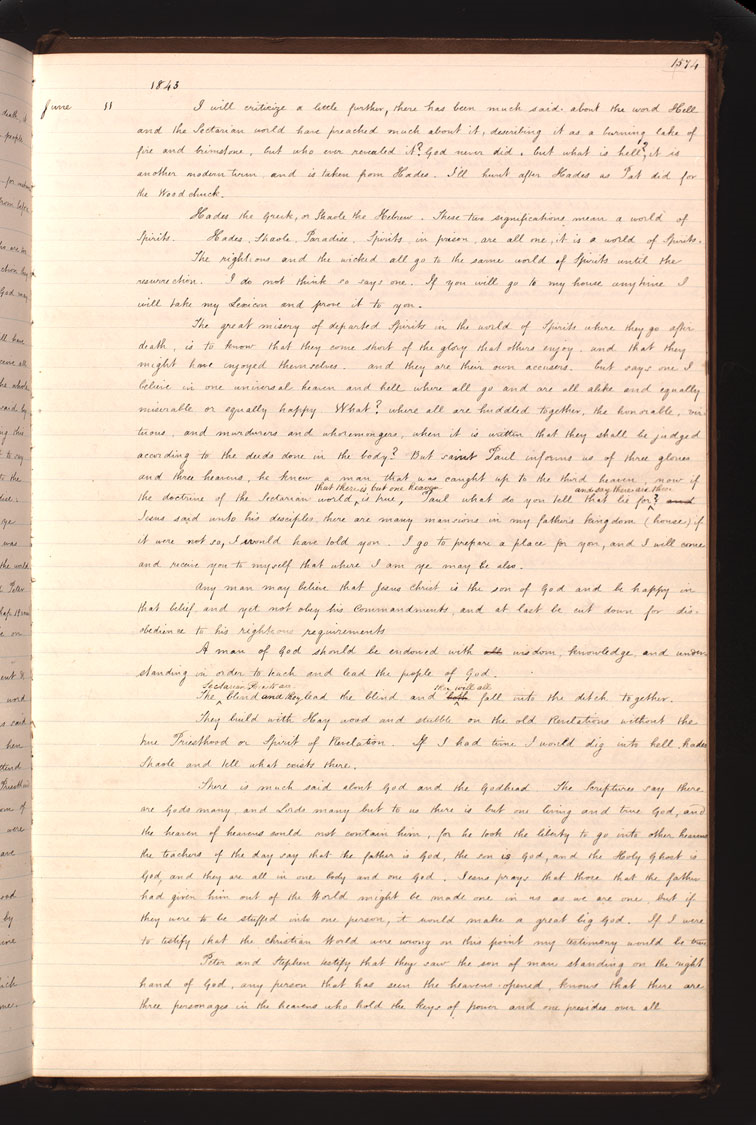 1574
1843
June 11 I will criticize a little further, there has been much said about the word Hell
and the Sectarian world have preached much about it, describing it as a burning lake of
fire and brimstone, but who ever revealed it? God never did. but what is hell? it is
another modern term, and is taken from Hades. I'll hunt after Hades as Pat did for
the Woodchuck.
Hades the Greek, or Shaole the Hebrew. These two significations mean a world of
Spirits. Hades, Shaole, Paradise, Spirits in prison, are all one, it is a world of Spirits.
The righteous and the wicked all go to the same world of Spirits until the
resurrection. I do not think so says one. If you will go to my house anytime I
will take my Lexicon and prove it to you.
The great misery of departed Spirits in the world of Spirits where they go after
death, is to know that they come short of the glory that others enjoy, and that they
might have enjoyed themselves. and they are their own accusers. but says one I
believe in one universal heaven and hell where all go and are all alike and equally
miserable or equally happy. What? where all are huddled together, the honorable, vir-
tuous, and murderers and whoremongers, when it is written that they shall be judged
according to the deeds done in the body? But saint Paul informs us of three glories
and three heavens, he knew a man that was caught up to the third heaven, now if
that there is but one heaven and say there are three
the doctrine of the Sectarian world, is true, Paul what do you tell that lie for? and
Jesus said unto his disciples, there are many mansions in my fathers kingdom (house) if
it were not so, I would have told you. I go to prepare a place for you, and I will come
and receive you to myself that where I am ye may be also.
Any man may believe that Jesus Christ is the son of God and be happy in
that belief and yet not obey his commandments, and at last be cut down for dis-
obedience to his righteous requirements
A man of God should be endowed with all wisdom, knowledge, and under-
standing in order to teach and lead the people of God.
Sectarian Priests are they will all
The blind and they lead the blind and both fall into the ditch together.
They build with Hay wood and stubble on the old Revelations without the
true Priesthood or Spirit of Revelation. If I had time I would dig into hell, hades
Shaole and tell what exists there.
There is much said about God and the Godhead. The Scriptures say there
are Gods many, and Lords many but to us there is but one living and true God, and
the heaven of heavens could not contain him, for he took the liberty to go into other heavens
the teachers of the day say that the father is God, the son is God, and the Holy Ghost is
God, and they are all in one body and one God. Jesus prays that those that the father
had given him out of the World might be made one in us as we are one, but if
they were to be stuffed into one person, it would make a great big God. If I were
to testify that the christian World were wrong on this point my testimony would be true
Peter and Stephen testify that they saw the son of man standing on the right
hand of God, any person that has seen the heavens opened, knows that there are
three personages in the heavens who hold the keys of power and one presides over all